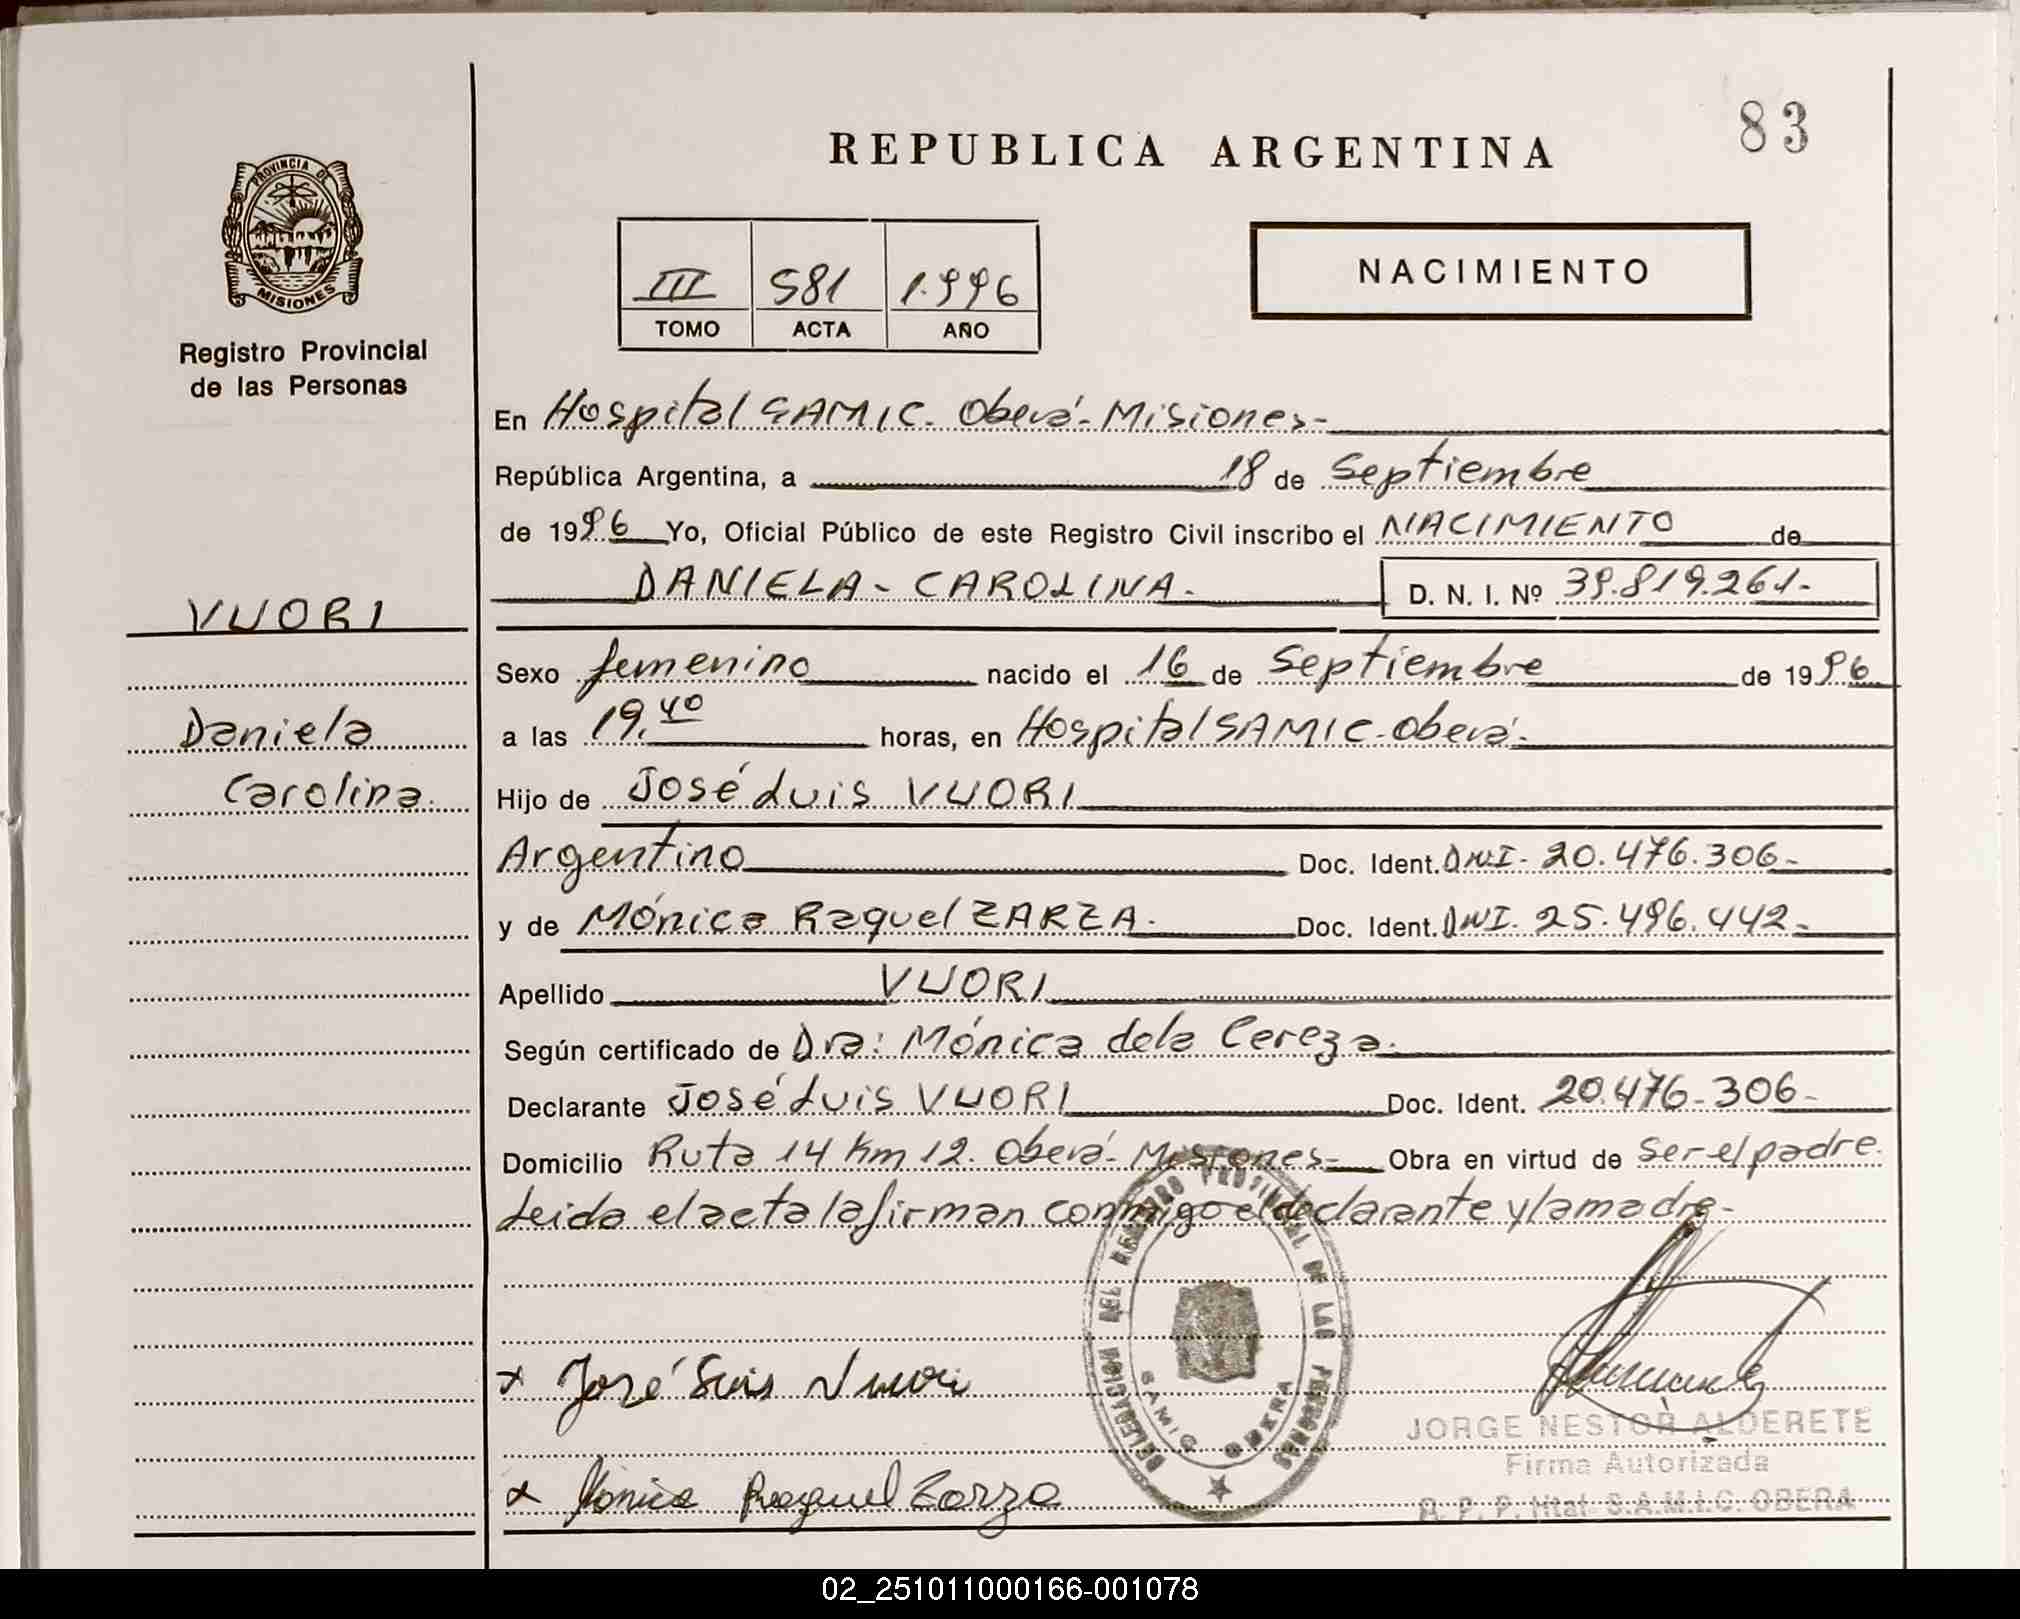 83
REPUBLICA ARGENTINA
PROVINCIA DE
MISIONES
Registro Provincial
de las Personas
III 581 1.996
TOMO ACTA AÑO
NACIMIENTO
En Hospital SAMIC. Oberá- Misiones-
República Argentina, a 18 de Septiembre
de 1996 Yo, Oficial Público de este Registro Civil inscribo el NACIMIENTO de
DANIELA - CAROLINA. D. N. I. Nº 39.819.261-
VUORI
Sexo femenino nacido el 16 de Septiembre de 1996
Daniela
a las 19,40 horas, en Hospital SAMIC-Oberá-
Carolina.
Hijo de José Luis VUORI
Argentino Doc. Ident. DNI- 20.476.306-
y de Mónica Raquel ZARZA. Doc. Ident. DNI. 25.496.442-
Apellido VUORI
Según certificado de Dra: Mónica dela Cereza.
Declarante José Luis VUORI Doc. Ident. 20.476-306-
Domicilio Ruta 14 Km 12. Oberá- Misiones- Obra en virtud de Ser el padre.
Leida el acta la firman conmigo el declarante y la madre-
DELEGACION DEL REGISTRO PROVINCIAL DE LAS PERSONAS
SAMIC OBERA
x José Luis Vuori
JORGE NESTOR ALDERETE
Firma Autorizada
x Mónica Raquel Zarza
R. P. P. Htal. S.A.M.I.C. OBERA
02_251011000166-001078